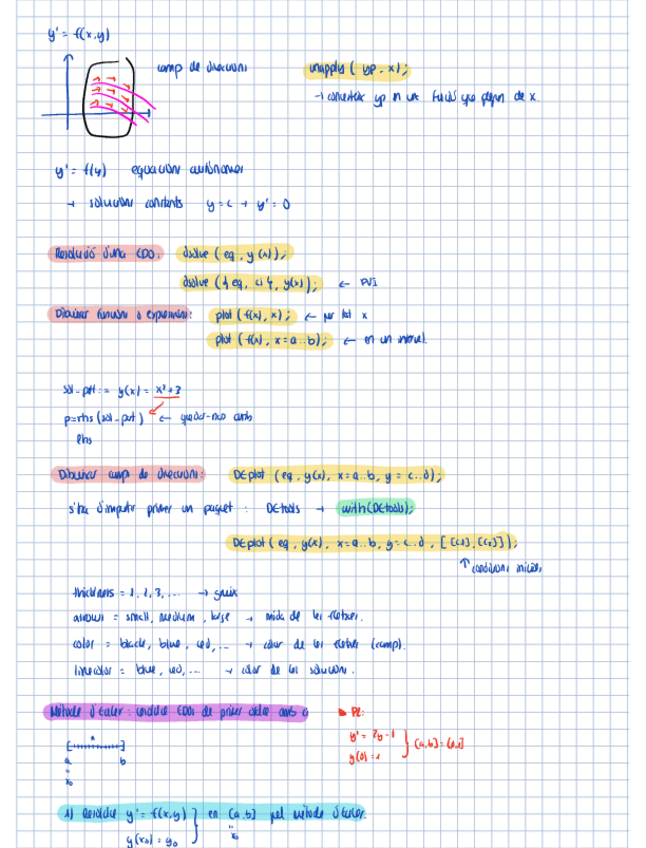 y' = f(x,y)
camp de direccions
unapply( yp, x);
→ convertir yp en una funció que depèn de x.
y' = f(y) equacions autònomes
→ solucions constants y=c → y'=0
Resolució d'una EDO: dsolve (eq, y(x));
dsolve ({eq, ci}, y(x)); ← PVI
Dibuixar funcions o expressions: plot (f(x), x); ← per tot x
plot (f(x), x=a..b); ← en un interval.
sol_part := y(x) = x²+3
p=rhs(sol_part) ← quedar-nos amb
lhs
Dibuixar camp de direccions: DEplot (eq, y(x), x=a..b, y=c..d);
s'ha d'importar primer un paquet : DEtools → with(DEtools);
DEplot( eq, y(x), x=a..b, y=c..d, [[c1],[c2]]);
↑ condicions inicials
thickness = 1, 2, 3, ... → gruix
arrows = small, medium, large → mida de les fletxes.
color = black, blue, red, ... → color de les fletxes (camp).
linecolor = blue, red, ... → color de les solucions.
Mètode d'Euler: resoldre EDOs de primer ordre amb ci
▶ PE:
y' = 2y-1
y(0)=1
[a,b]=[0,1]
a b
=
x₀
1) Resoldre y' = f(x,y) en [a,b] pel mètode d'Euler.
y(x₀) = y₀
x₀